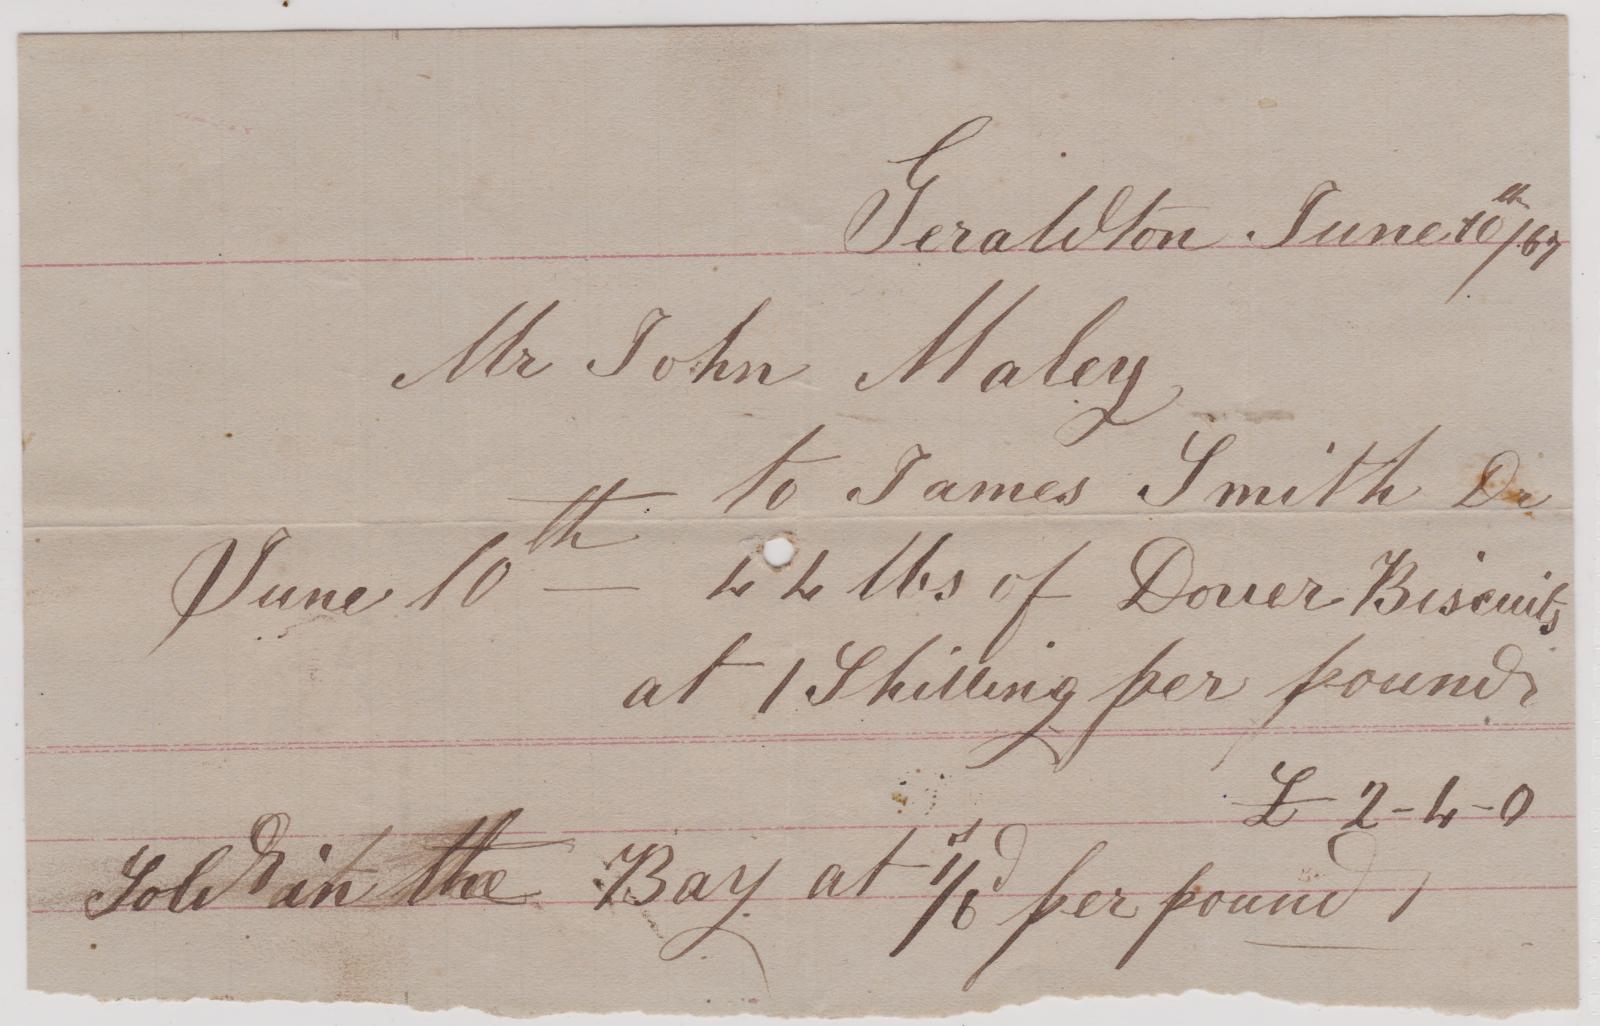 Geraldton June 10th/67
Mr John Maley
to James Smith Dr
June 10th — 44 lbs of Dover Biscuits
at 1 Shilling per pound
£ 2-4-0
Sold in the Bay at 1s/6d per pound